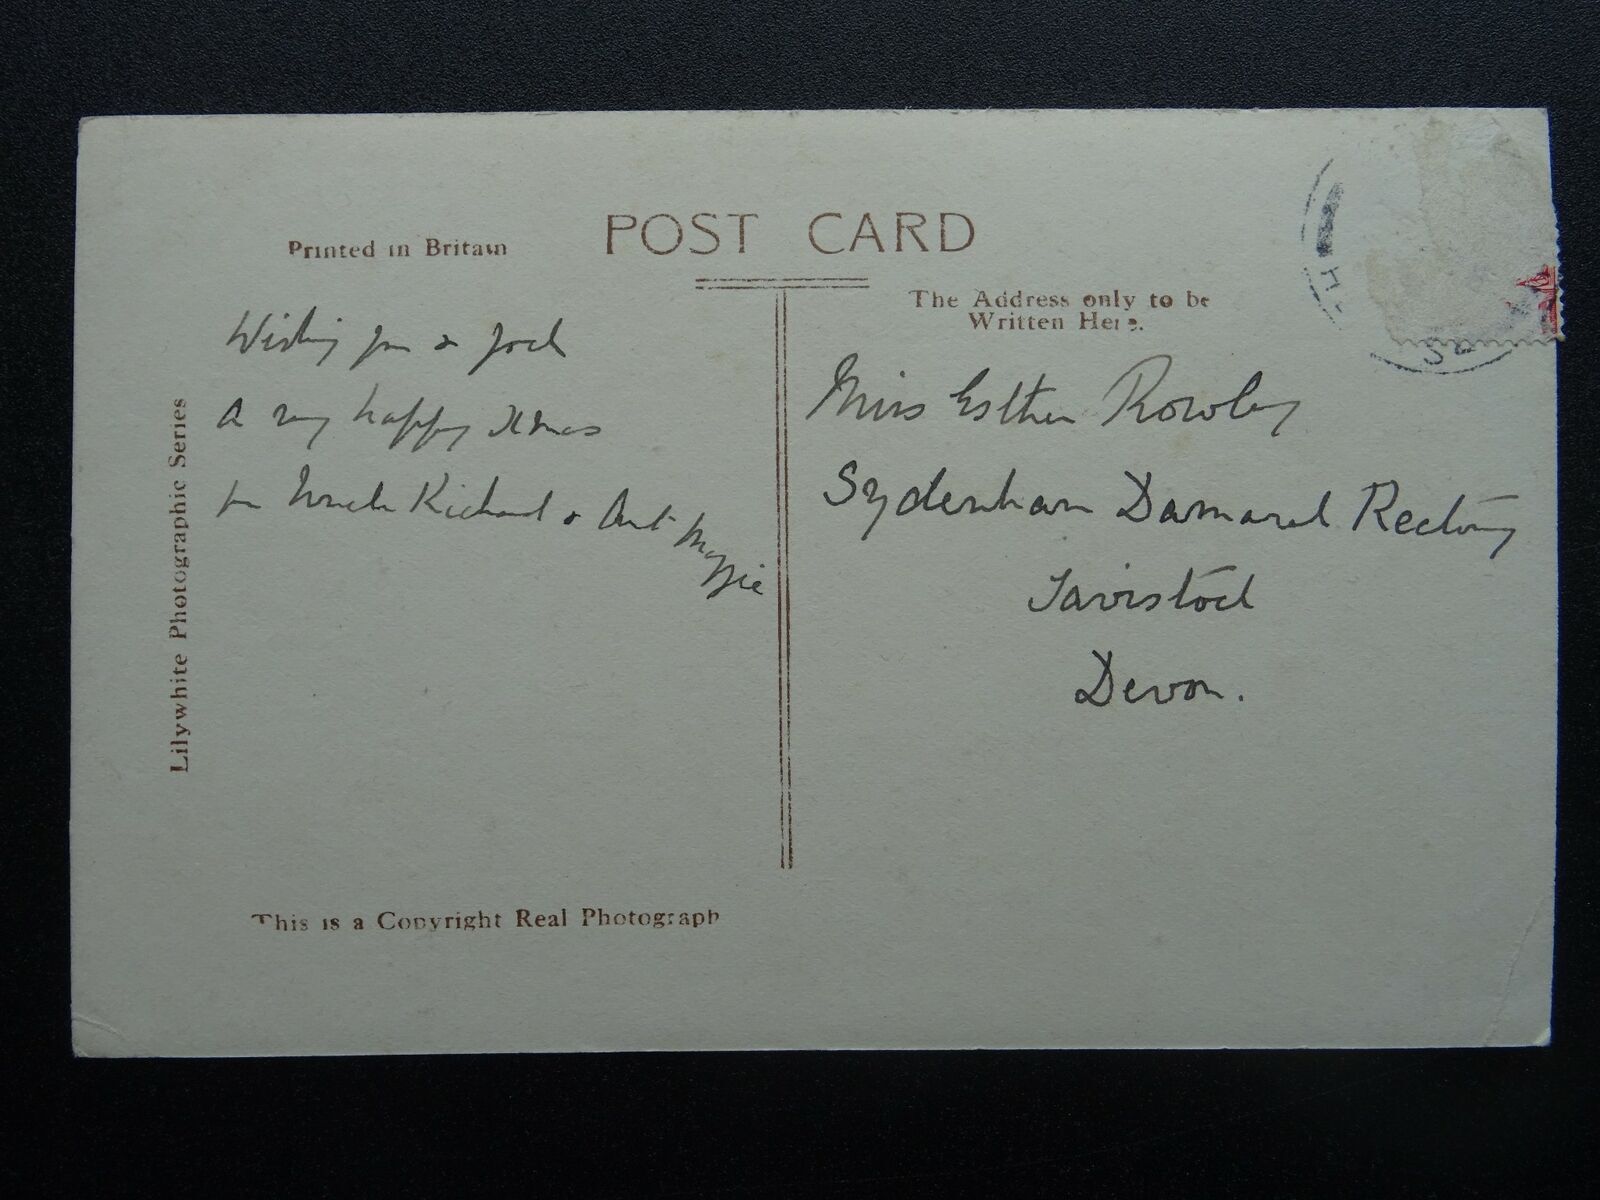 POST CARD
Printed in Britain
The Address only to be
Written Here.
Lilywhite Photographic Series
Wishing you &
A very happy Xmas
fr Uncle Richard & Aunt Maggie
Miss Esther Rowley
Sydenham Damarel Rectory
Tavistock
Devon.
This is a Copyright Real Photograph